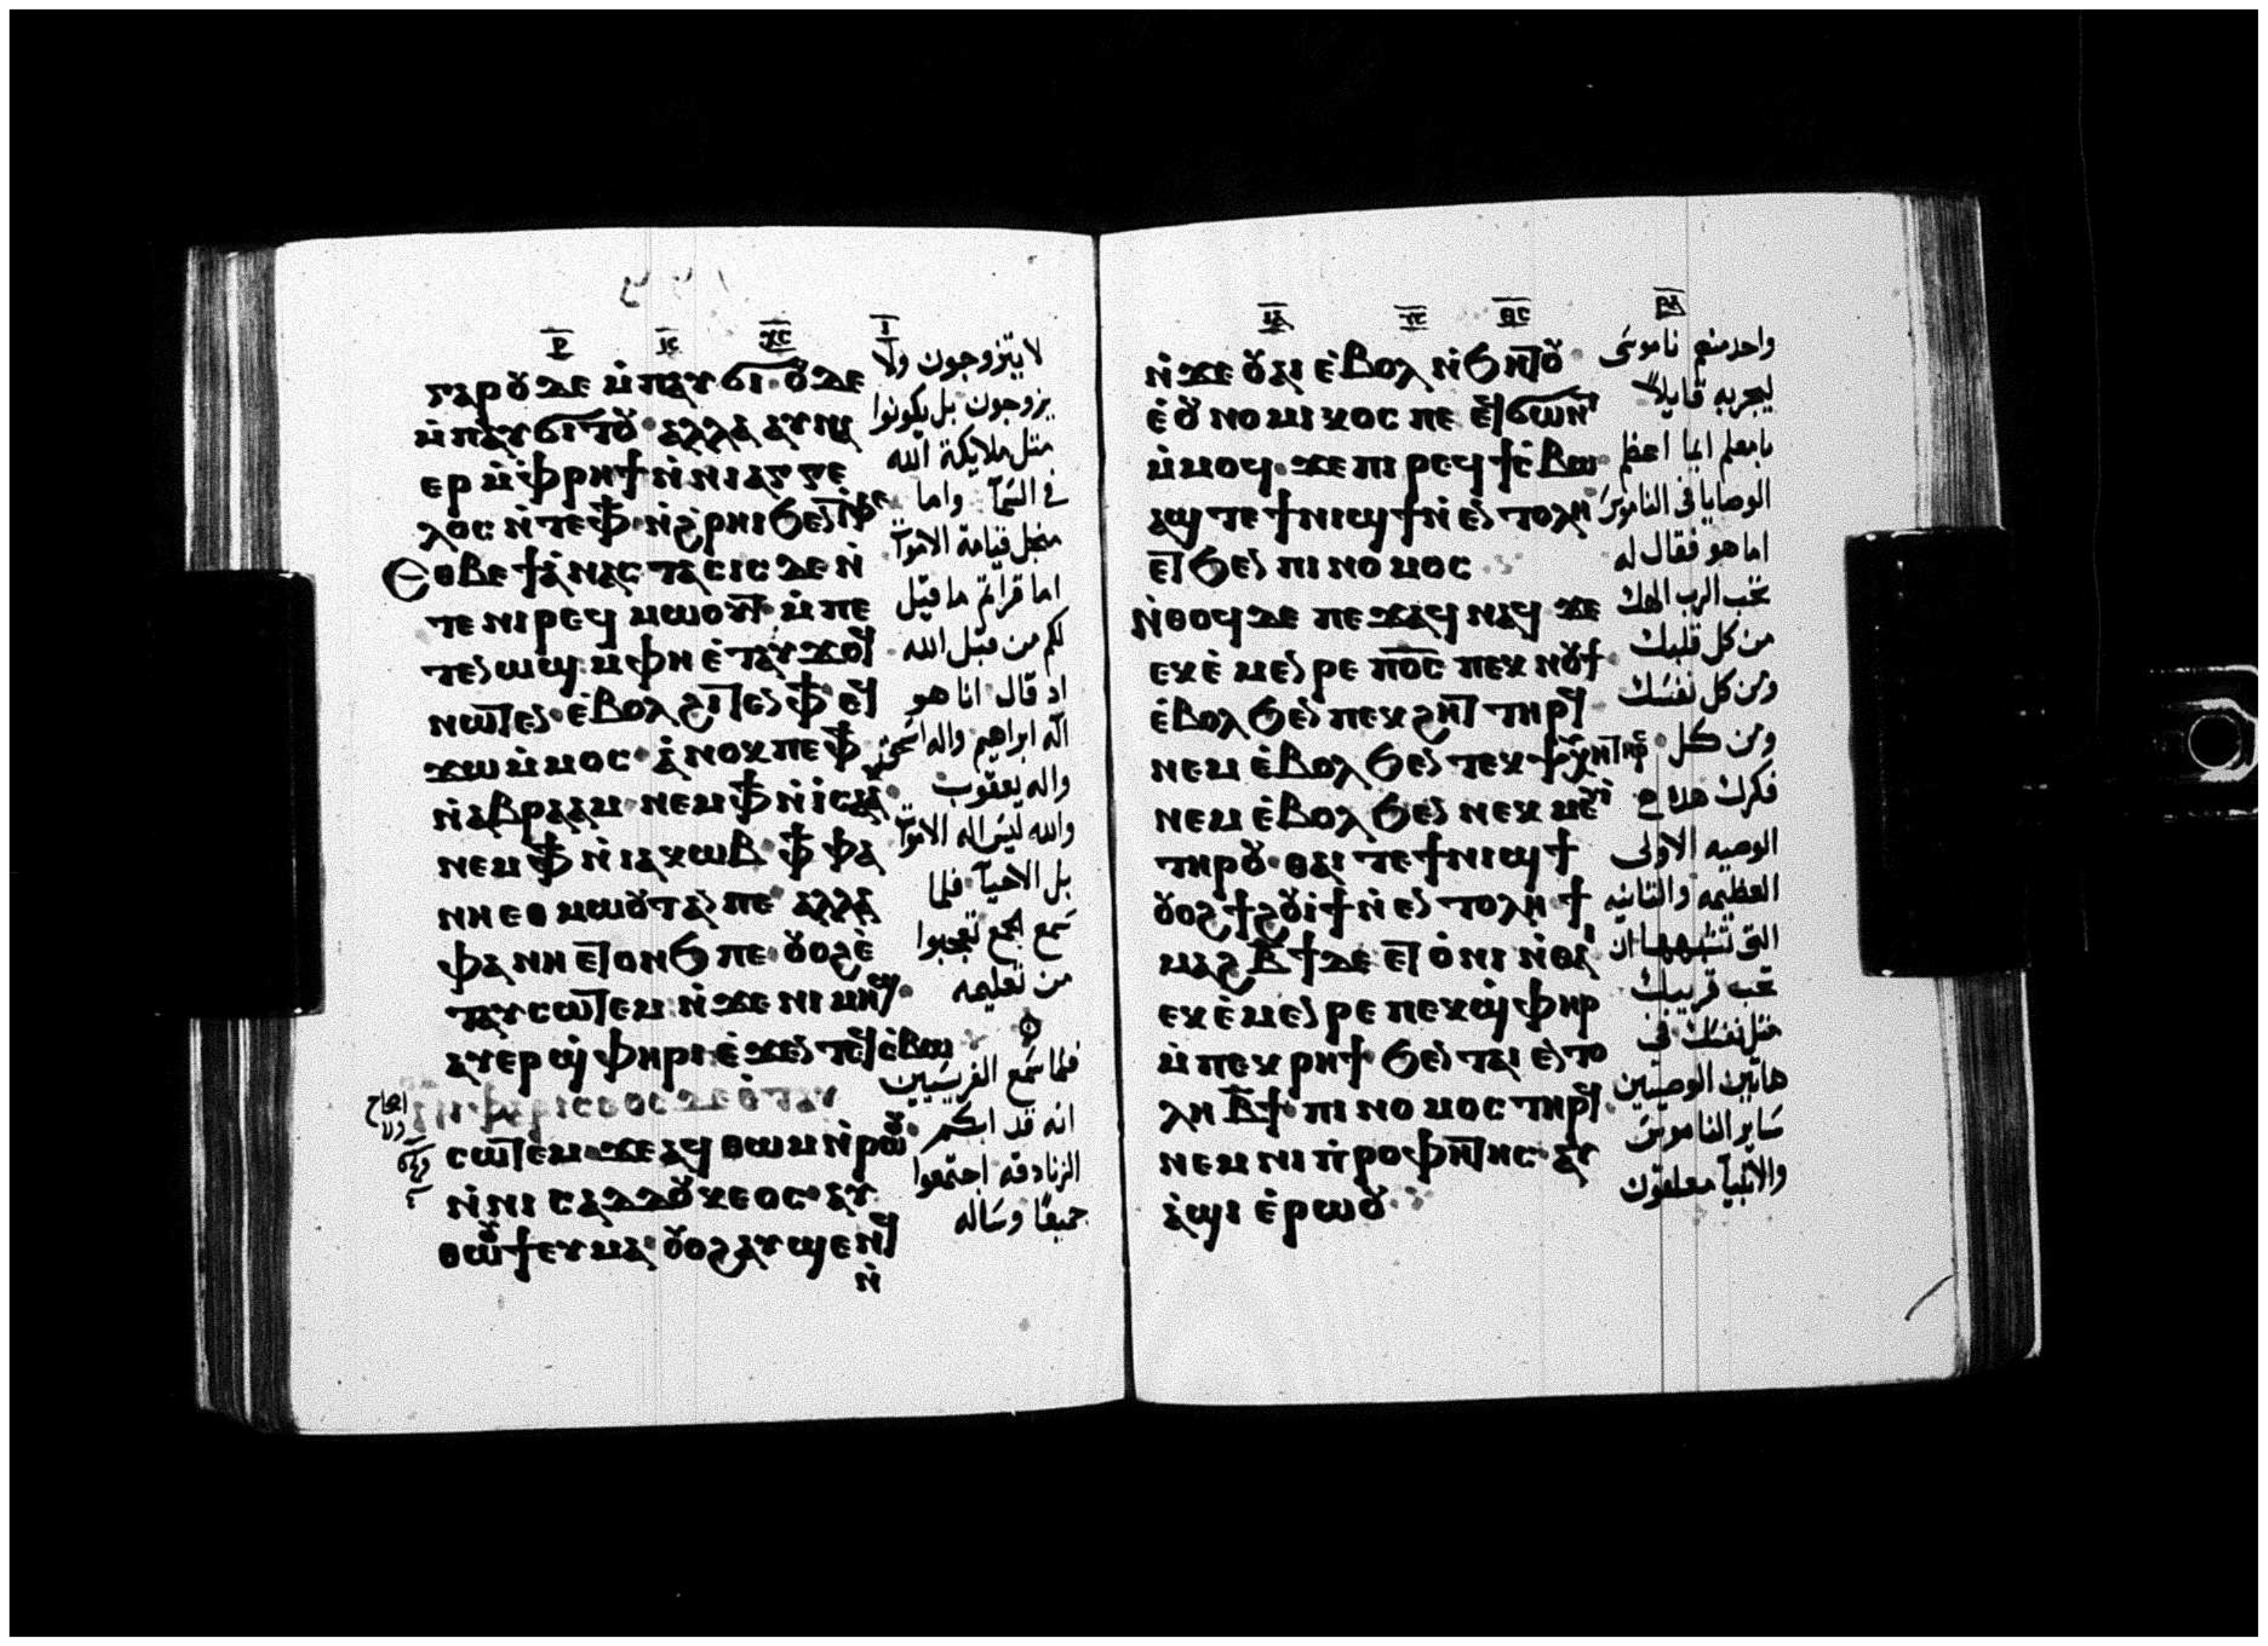 ⲅⲁⲣⲟⲩ ⲇⲉ ⲙ̀ⲡⲁⲩϭⲓ· ⲟⲩⲇⲉ
ⲙ̀ⲡⲁⲩϭⲓⲧⲟⲩ· ⲁⲗⲗⲁ ⲁⲩⲛⲁ
ⲉⲣ ⲙ̀ⲫⲣⲏϯ ⲛ̀ⲛⲓⲁⲅⲅⲉ
ⲗⲟⲥ ⲛ̀ⲧⲉ ⲫϯ· ⲛ̀ϩ̀ⲣⲏⲓ ϧⲉⲛ ⲧⲫⲉ
Ⲉⲑⲃⲉ ϯⲁ̀ⲛⲁⲥⲧⲁⲥⲓⲥ ⲇⲉ ⲛ̀
ⲧⲉ ⲛⲓⲣⲉϥⲙⲱⲟⲩⲧ· ⲙ̀ⲡⲉ
ⲧⲉⲛⲱϣ ⲙ̀ⲫⲏ ⲉ̀ⲧⲁⲩϫⲟϥ
ⲛⲱⲧⲉⲛ· ⲉ̀ⲃⲟⲗ ϩⲓⲧⲉⲛ ⲫϯ ⲉϥ
ϫⲱ ⲙ̀ⲙⲟⲥ· ⲁ̀ⲛⲟⲕ ⲡⲉ ⲫϯ
ⲛ̀ⲁⲃⲣⲁⲁⲙ ⲛⲉⲙ ⲫϯ ⲛ̀ⲓ̀ⲥⲁⲕ
ⲛⲉⲙ ⲫϯ ⲛ̀ⲓⲁⲕⲱⲃ· ⲫϯ ⲫⲁ
ⲛⲏⲉⲑⲙⲱⲟⲩⲧ ⲁⲛ ⲡⲉ· ⲁⲗⲗⲁ
ⲫⲁ ⲛⲏⲉⲧⲟⲛϧ ⲡⲉ· ⲟⲩⲟϩ ⲉ̀
ⲧⲁⲩⲥⲱⲧⲉⲙ ⲛ̀ϫⲉ ⲛⲓⲙⲏϣ·
ⲁⲩⲉⲣϣ̀ⲫⲏⲣⲓ ⲉ̀ϫⲉⲛ ⲧⲉϥⲥ̀ⲃⲱ
ⲥⲱⲧⲉⲙ ϫⲉ ⲁϥⲑⲱⲙ ⲛ̀ⲣⲱⲟⲩ·
ⲛ̀ⲛⲓⲥⲁⲇⲇⲟⲩⲕⲉⲟⲥ· ⲁⲩ
ⲑⲱⲟⲩϯ ⲉⲩⲙⲁ· ⲟⲩⲟϩ ⲁⲩϣⲉⲛϥ
ⲛ̀
لا يتزوجون ولا
يزوجون بل يكونوا
مثل ملايكة الله
في السمآ واما
منجل قيامة الاموآت
اما قرأتم ما قيل
لكم من قبل الله
اد قال انا هو
آله ابراهيم واله اسحق
واله يعقوب
والله ليس اله الاموآت
بل الاحيآ فلما
سمع الجمع تعجبوا
من تعليمه
فلما سمع الفريسيين
انه قد ابكم
الزنادقه اجتمعوا
جميعًا وساله
ⲛ̀ϫⲉ ⲟⲩⲁⲓ ⲉ̀ⲃⲟⲗ ⲛ̀ϧⲏⲧⲟⲩ
ⲉ̀ⲟⲩⲛⲟⲙⲓⲕⲟⲥ ⲡⲉ ⲉϥϭⲱⲛⲧ
ⲙ̀ⲙⲟϥ· ϫⲉ ⲡⲓⲣⲉϥϯⲥ̀ⲃⲱ
ⲁϣ ⲧⲉ ϯⲛⲓϣϯ ⲛ̀ⲉⲛⲧⲟⲗⲏ
ⲉⲧϧⲉⲛ ⲡⲓⲛⲟⲙⲟⲥ
ⲛ̀ⲑⲟϥ ⲇⲉ ⲡⲉϫⲁϥ ⲛⲁϥ ϫⲉ
ⲉⲕⲉ̀ⲙⲉⲛⲣⲉ ⲡ̅ⲟ̅ⲥ̅ ⲡⲉⲕⲛⲟⲩϯ·
ⲉ̀ⲃⲟⲗ ϧⲉⲛ ⲡⲉⲕϩⲏⲧ ⲧⲏⲣϥ
ⲛⲉⲙ ⲉ̀ⲃⲟⲗ ϧⲉⲛ ⲧⲉⲕⲯⲩⲭⲏ ⲧⲏⲣⲥ
ⲛⲉⲙ ⲉ̀ⲃⲟⲗ ϧⲉⲛ ⲛⲉⲕⲙⲉⲩⲓ̀
ⲧⲏⲣⲟⲩ· ⲑⲁⲓ ⲧⲉ ϯⲛⲓϣϯ
ⲟⲩⲟϩ ϯϩⲟⲩⲓ̀ϯ ⲛ̀ⲉⲛⲧⲟⲗⲏ· ϯ
ⲙⲁϩ ⲃ̅ϯ ⲇⲉ ⲉⲧⲟ̀ⲛⲓ ⲛ̀ⲑⲁⲓ
ⲉⲕⲉ̀ⲙⲉⲛⲣⲉ ⲡⲉⲕϣ̀ⲫⲏⲣ
ⲙ̀ⲡⲉⲕⲣⲏϯ· ϧⲉⲛ ⲧⲁⲓ ⲉⲛⲧⲟ
ⲗⲏ ⲃ̅ϯ· ⲡⲓⲛⲟⲙⲟⲥ ⲧⲏⲣϥ·
ⲛⲉⲙ ⲛⲓⲡ̀ⲣⲟⲫⲏⲧⲏⲥ· ⲁⲩ
ⲁ̀ϣⲓ ⲉ̀ⲣⲱⲟⲩ
واحد منهم ناموسى
ليجربه قايلاً
يا معلم ايما اعظم
الوصايا في الناموس
اما هو فقال له
تحب الرب الهك
من كل قلبك
ومن كل نفسك
ومن كل
فكرك هده
الوصيه الاولى
العظيمه والثانيه
التي تشبهها ان
تحب قريبك
مثل نفسك في
هاتين الوصيتين
ساير الناموس
والانبيآ معلقون